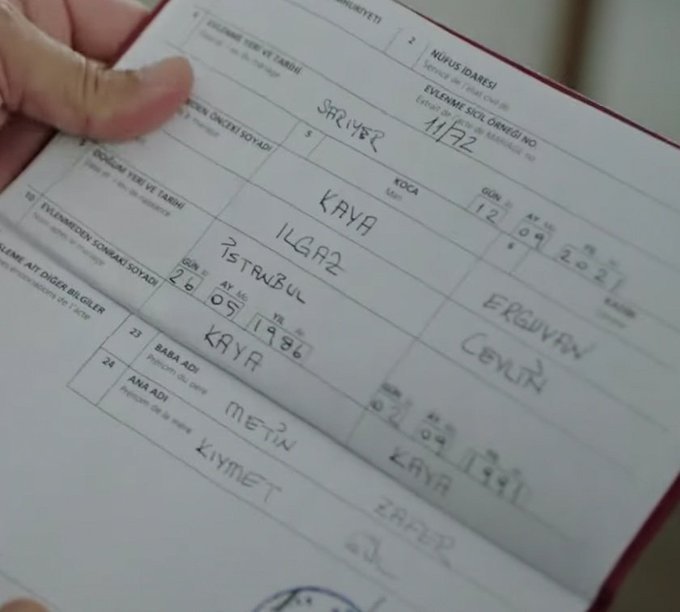 2 NÜFUS İDARESİ
Service de l'état civil de
EVLENME SİCİL ÖRNEĞİ NO
Extrait de l'acte de mariage no
11/72
EVLENME YERİ VE TARİHİ
SARIYER
GÜN AY YIL
12 09 2021
5 KOCA
Mari
6 KADIN
ÖNCEKİ SOYADI
KAYA ERGUVAN
ILGAZ CEYLİN
DOĞUM YERİ VE TARİHİ
İSTANBUL
GÜN AY YIL
26 05 1986
02 09 1991
10 EVLENMEDEN SONRAKİ SOYADI
KAYA KAYA
AİT DİĞER BİLGİLER
23 BABA ADI
Prénom du père
METİN ZAFER
24 ANA ADI
Prénom de la mère
KIYMET GÜL